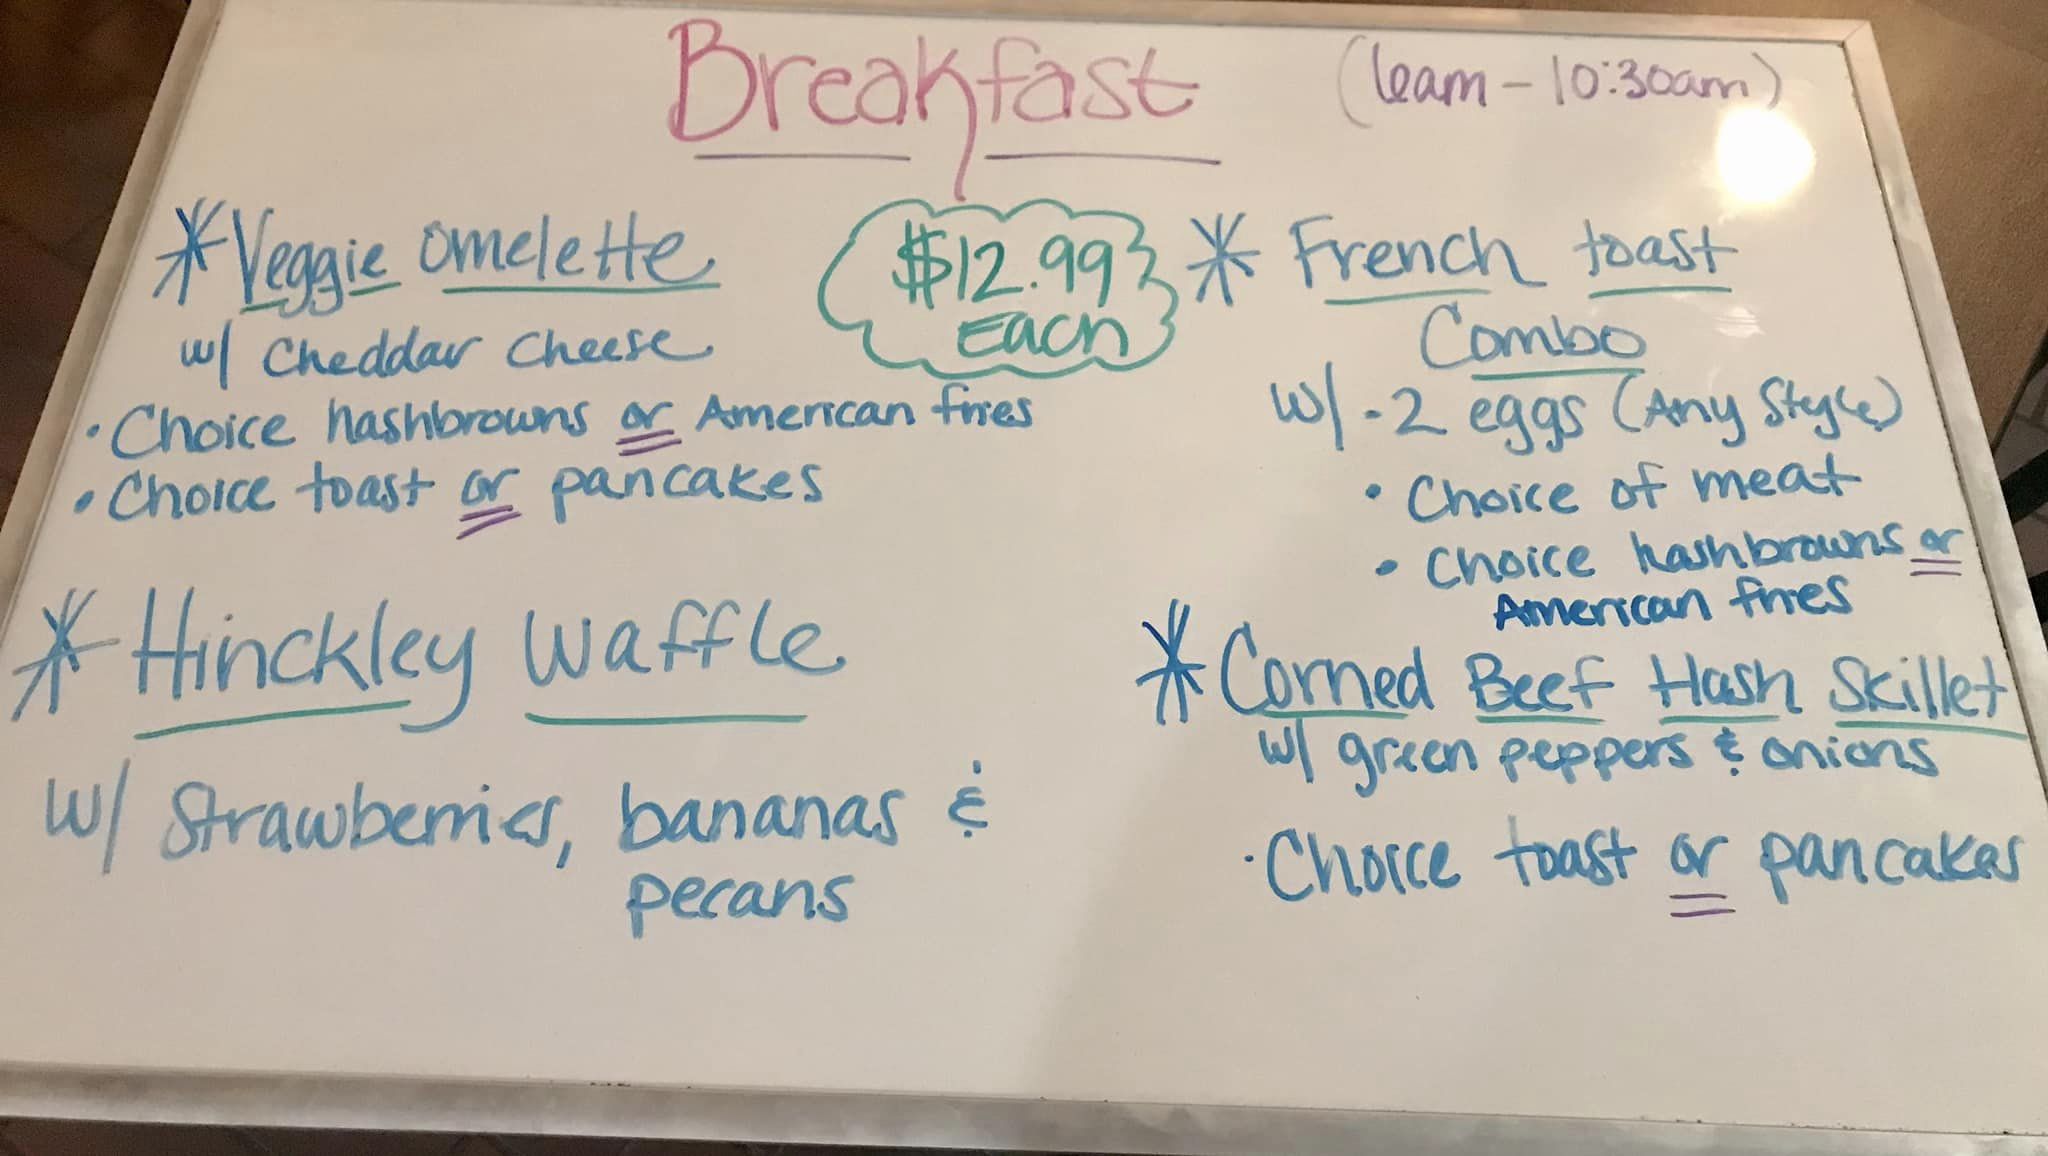 Breakfast (6am - 10:30am)
$12.99
Each
* Veggie omelette
w/ Cheddar Cheese
• Choice hashbrowns or American fries
• Choice toast or pancakes
* Hinckley Waffle
w/ Strawberries, bananas &
pecans
* French toast
Combo
w/ - 2 eggs (Any Style)
• Choice of meat
• Choice hashbrowns or
American fries
* Corned Beef Hash Skillet
w/ green peppers & onions
• Choice toast or pancakes